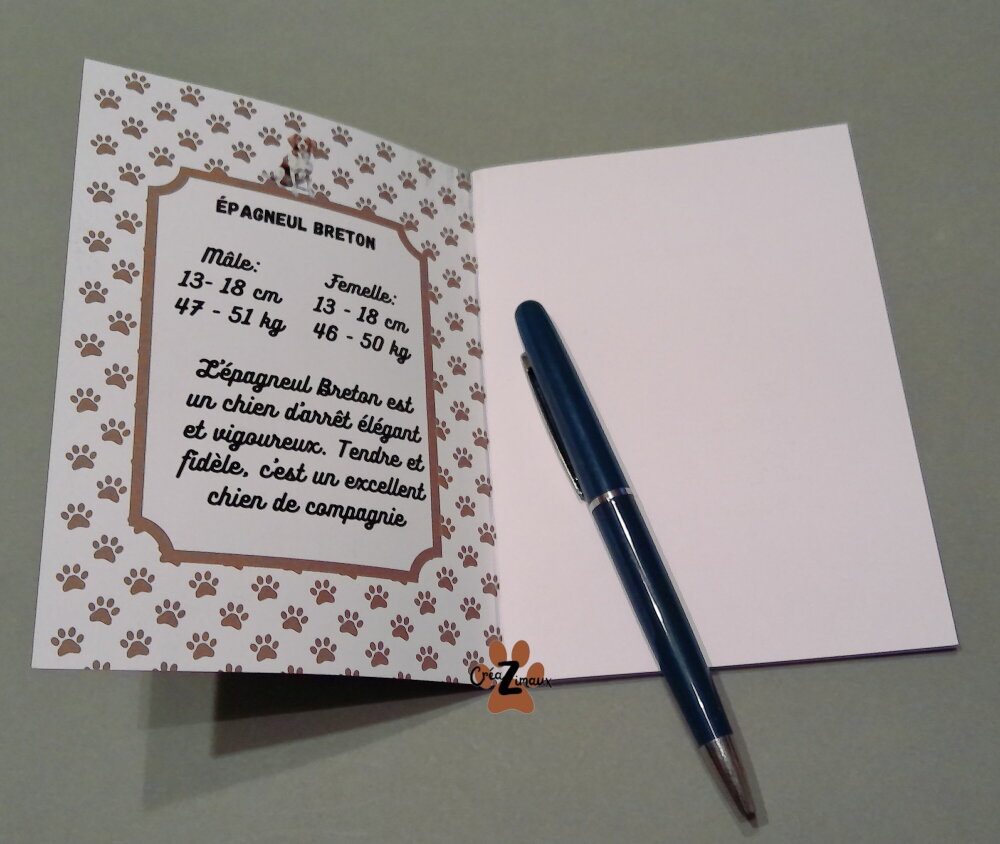 ÉPAGNEUL BRETON
Mâle:
13- 18 cm
47 - 51 kg
Femelle:
13 - 18 cm
46 - 50 kg
L'épagneul Breton est
un chien d'arrêt élégant
et vigoureux. Tendre et
fidèle, c'est un excellent
chien de compagnie
CréaZimaux